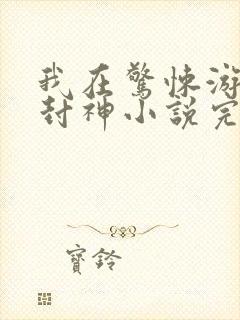 我在驚悚游
封神小說完
寶鈴